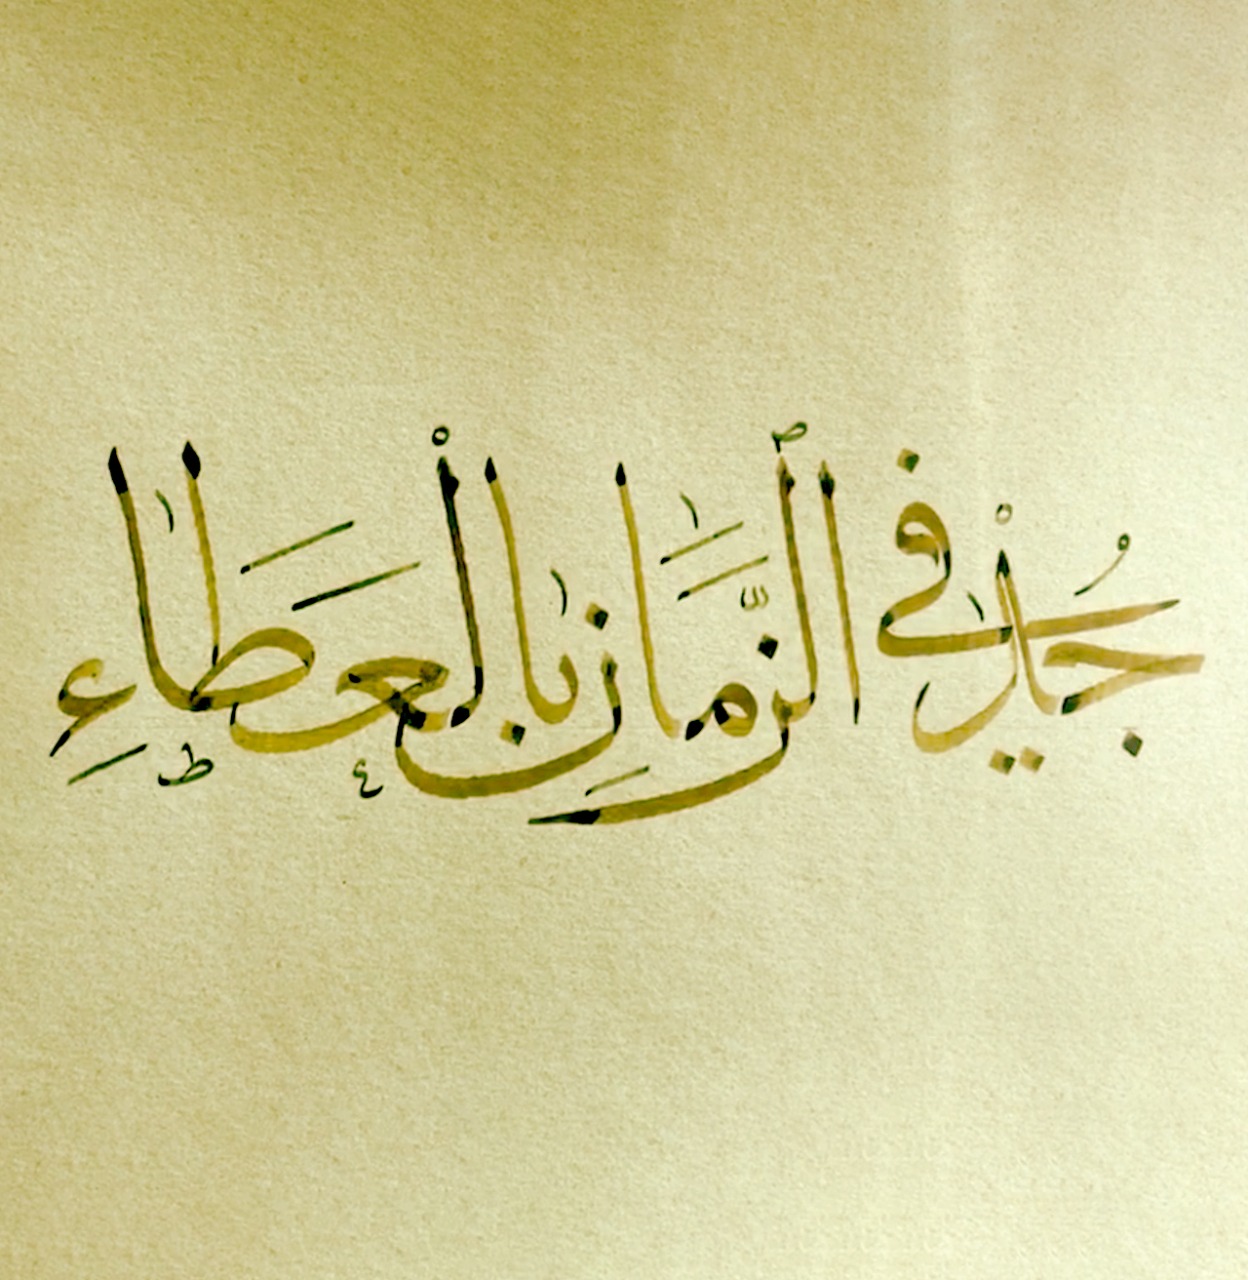 جُدْ في ٱلزَّمَانِ بالْعَطَاءِ